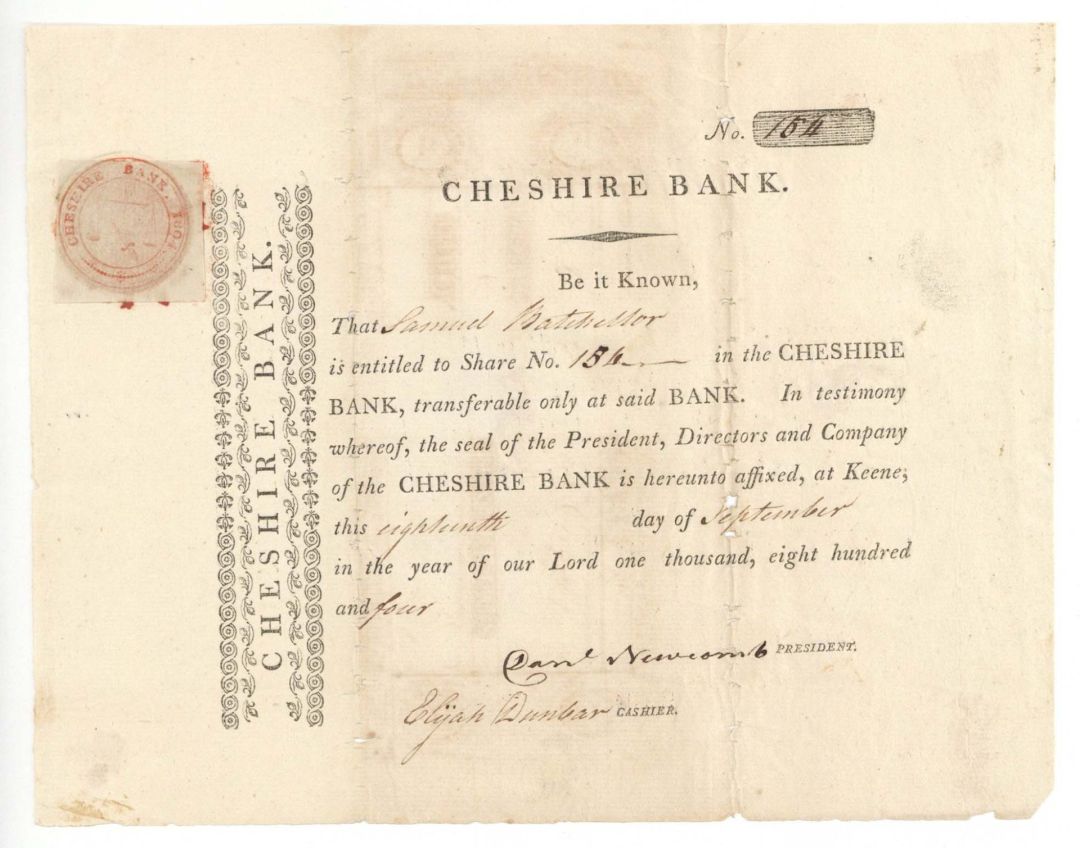 No. 154
CHESHIRE BANK. 1804
CHESHIRE BANK.
CHESHIRE BANK.
Be it Known,
That Samuel Batchellor
is entitled to Share No. 154 in the CHESHIRE
BANK, transferable only at said BANK. In testimony
whereof, the seal of the President, Directors and Company
of the CHESHIRE BANK is hereunto affixed, at Keene,
this eighteenth day of September
in the year of our Lord one thousand, eight hundred
and four
Danl Newcomb PRESIDENT.
Elijah Dunbar CASHIER.